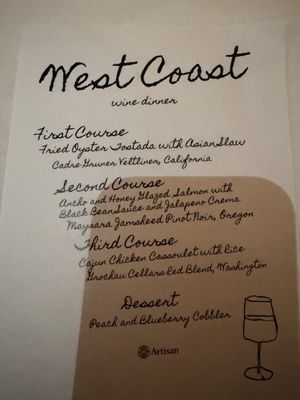 West Coast
wine dinner
First Course
Fried Oyster Tostada with Asian Slaw
Cadre Gruner Veltliner, California
Second Course
Ancho and Honey Glazed Salmon with
Black Bean Sauce and Jalapeno Crema
Maysara Jamsheed Pinot Noir, Oregon
Third Course
Cajun Chicken Cassoulet with Rice
Grochau Cellars Red Blend, Washington
Dessert
Peach and Blueberry Cobbler
Artisan